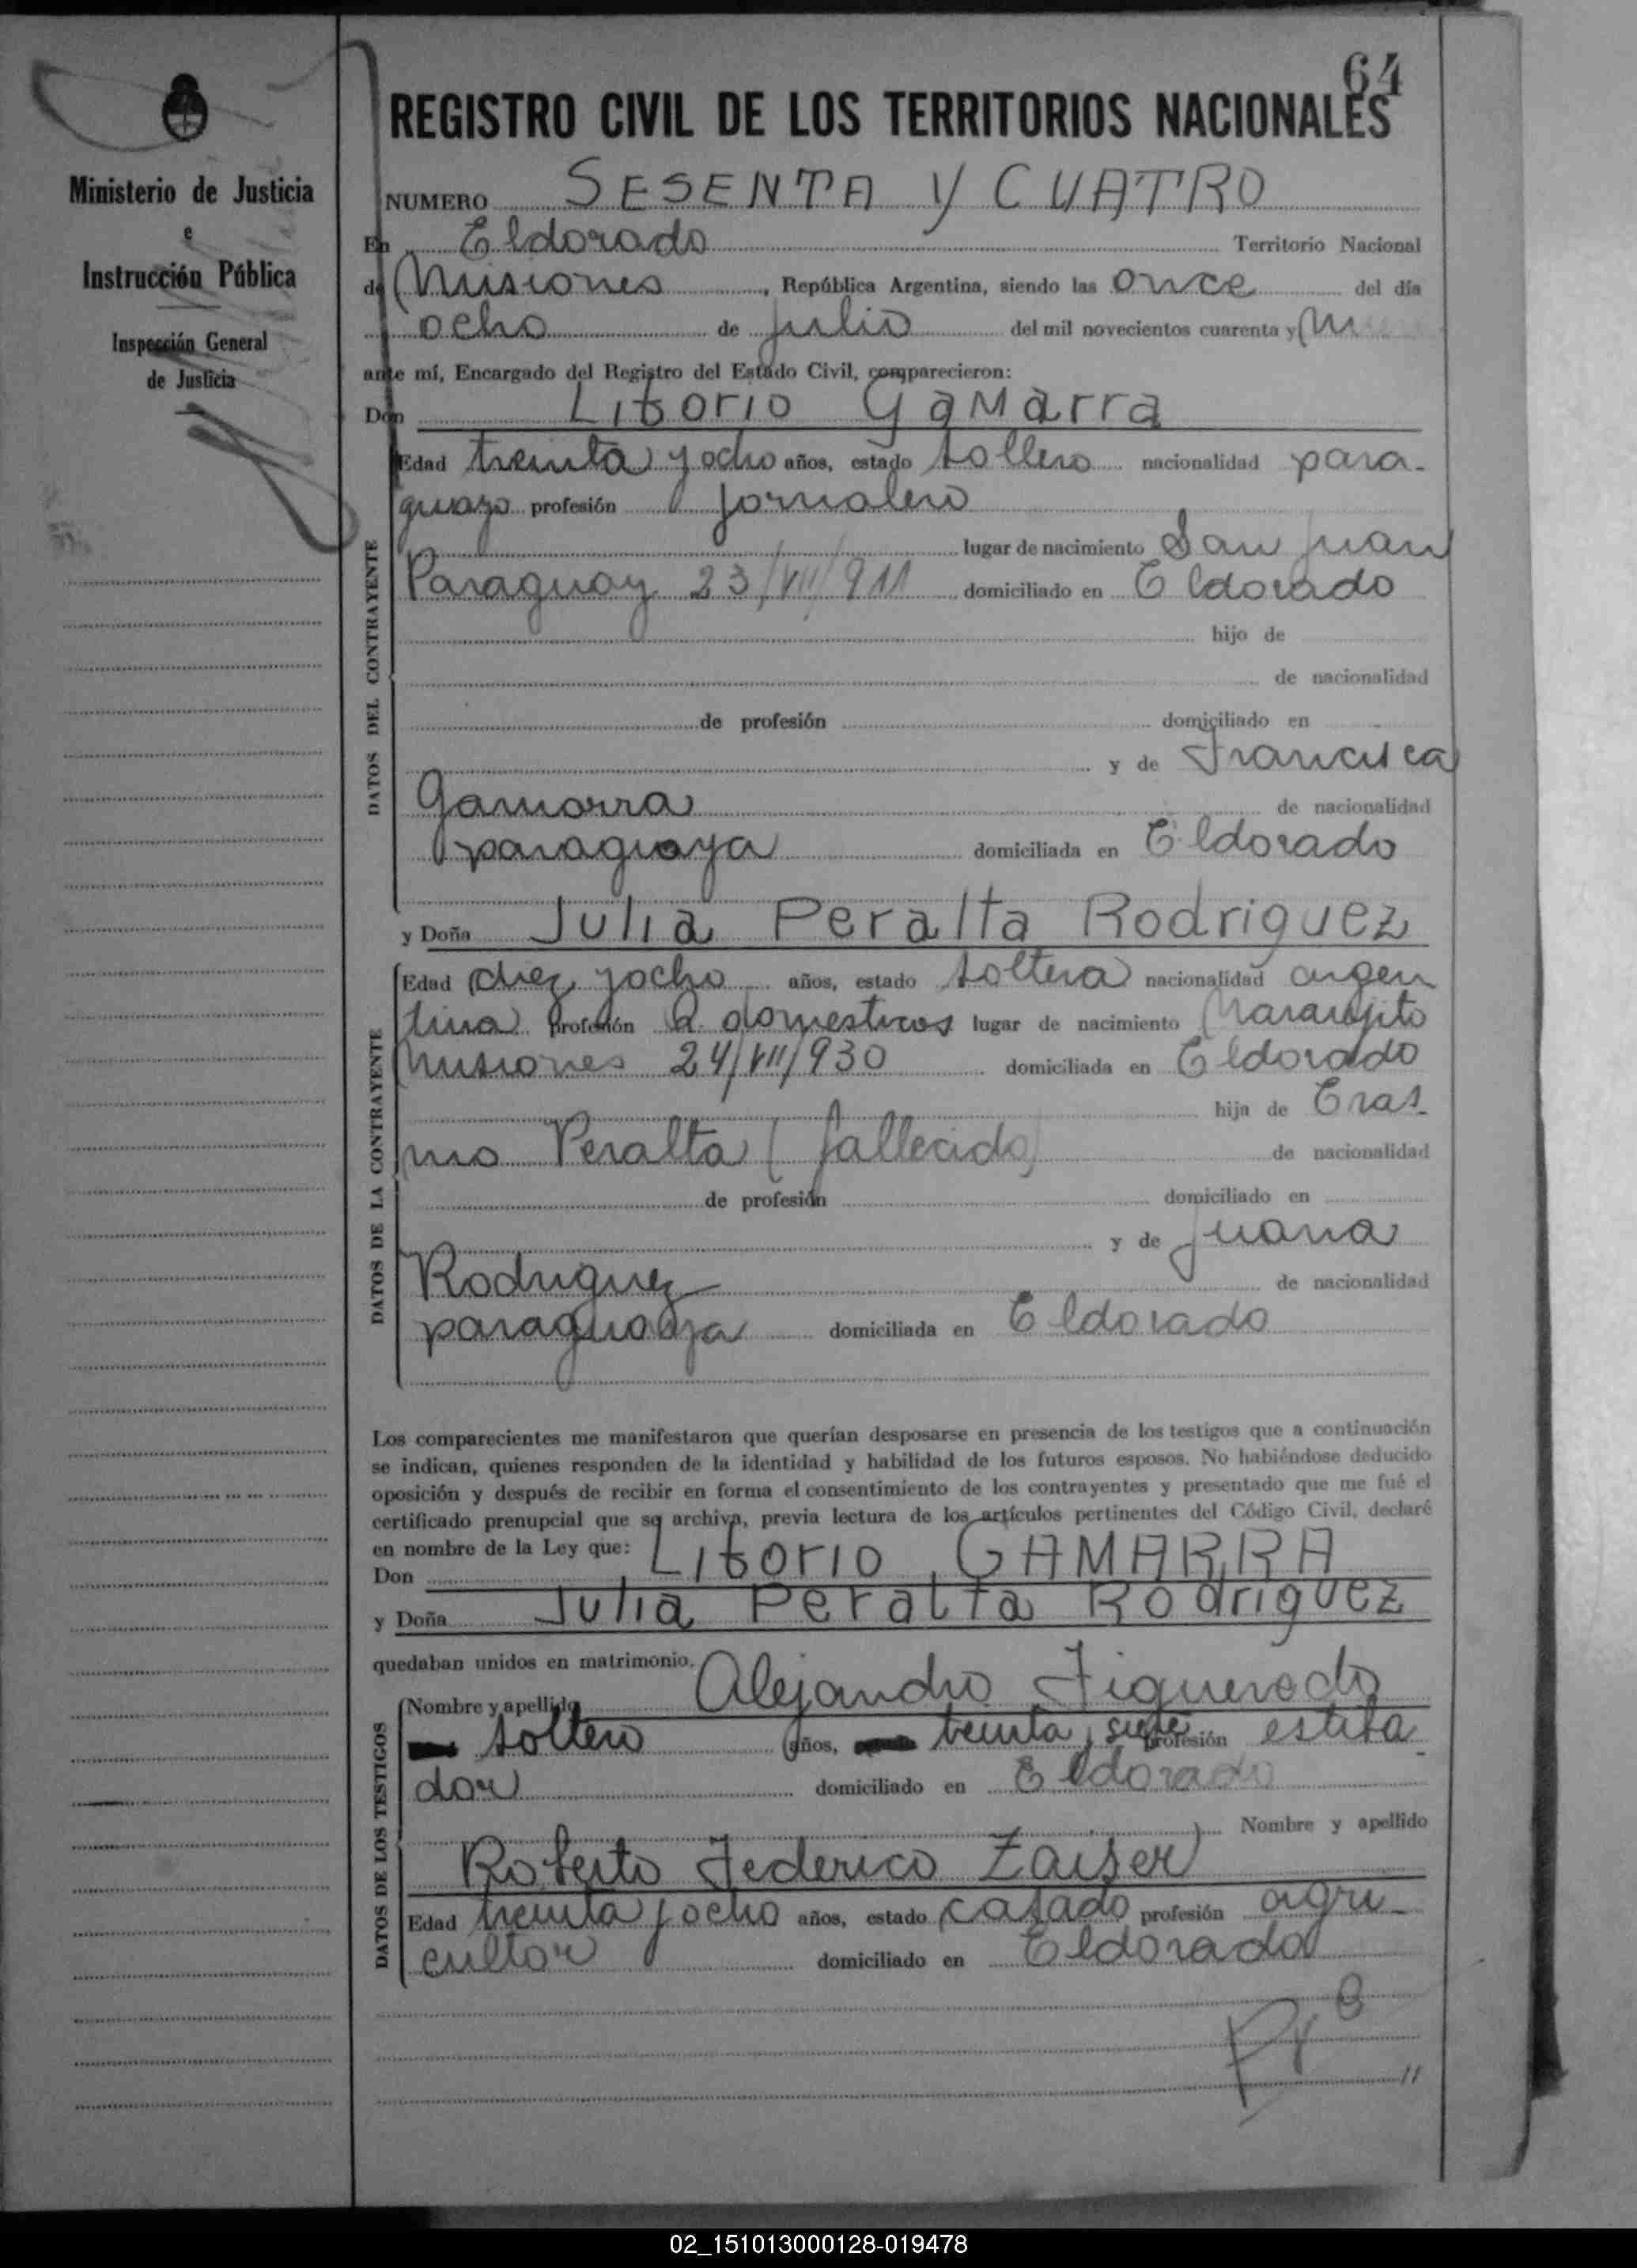 64
REGISTRO CIVIL DE LOS TERRITORIOS NACIONALES
Ministerio de Justicia
e
Instrucción Pública
Inspección General
de Justicia
NUMERO SESENTA Y CUATRO
En Eldorado Territorio Nacional
de Misiones, República Argentina, siendo las once del día
ocho de julio del mil novecientos cuarenta y
ante mí, Encargado del Registro del Estado Civil, comparecieron:
Don Liborio Gamarra
DATOS DEL CONTRAYENTE
Edad treinta y ocho años, estado soltero nacionalidad para-
guayo profesión jornalero
lugar de nacimiento San Juan
Paraguay 23/VII/911 domiciliado en Eldorado
hijo de
de nacionalidad
de profesión domiciliado en
y de Francisca
Gamarra de nacionalidad
paraguaya domiciliada en Eldorado
y Doña Julia Peralta Rodriguez
DATOS DE LA CONTRAYENTE
Edad diez y ocho años, estado soltera nacionalidad argen
tina profesión Q. domesticos lugar de nacimiento Naranjito
Misiones 24/VII/930 domiciliada en Eldorado
hija de Eras-
mo Peralta (fallecido) de nacionalidad
de profesión domiciliado en
y de Juana
Rodriguez de nacionalidad
paraguaya domiciliada en Eldorado
Los comparecientes me manifestaron que querían desposarse en presencia de los testigos que a continuación
se indican, quienes responden de la identidad y habilidad de los futuros esposos. No habiéndose deducido
oposición y después de recibir en forma el consentimiento de los contrayentes y presentado que me fué el
certificado prenupcial que se archiva, previa lectura de los artículos pertinentes del Código Civil, declaré
en nombre de la Ley que:
Don Liborio GAMARRA
y Doña Julia Peralta Rodriguez
quedaban unidos en matrimonio.
DATOS DE LOS TESTIGOS
Nombre y apellido Alejandro Figueredo
soltero años, treinta y siete profesión estiba
dor domiciliado en Eldorado
Nombre y apellido
Roberto Federico Zaiser
Edad treinta y ocho años, estado casado profesión agri-
cultor domiciliado en Eldorado
02_151013000128-019478